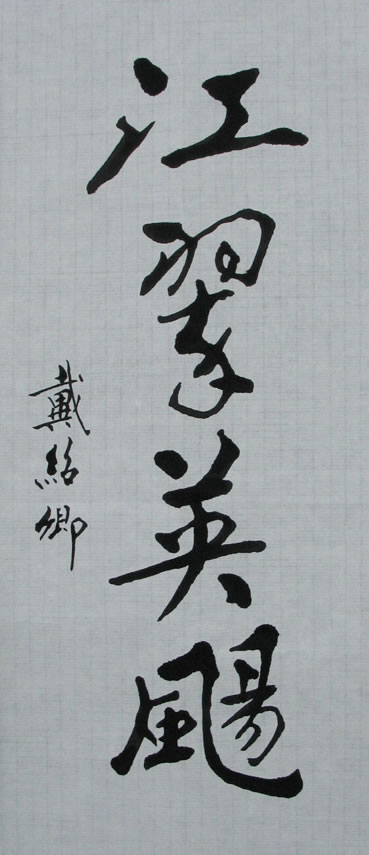 江翠英颺
戴紹卿